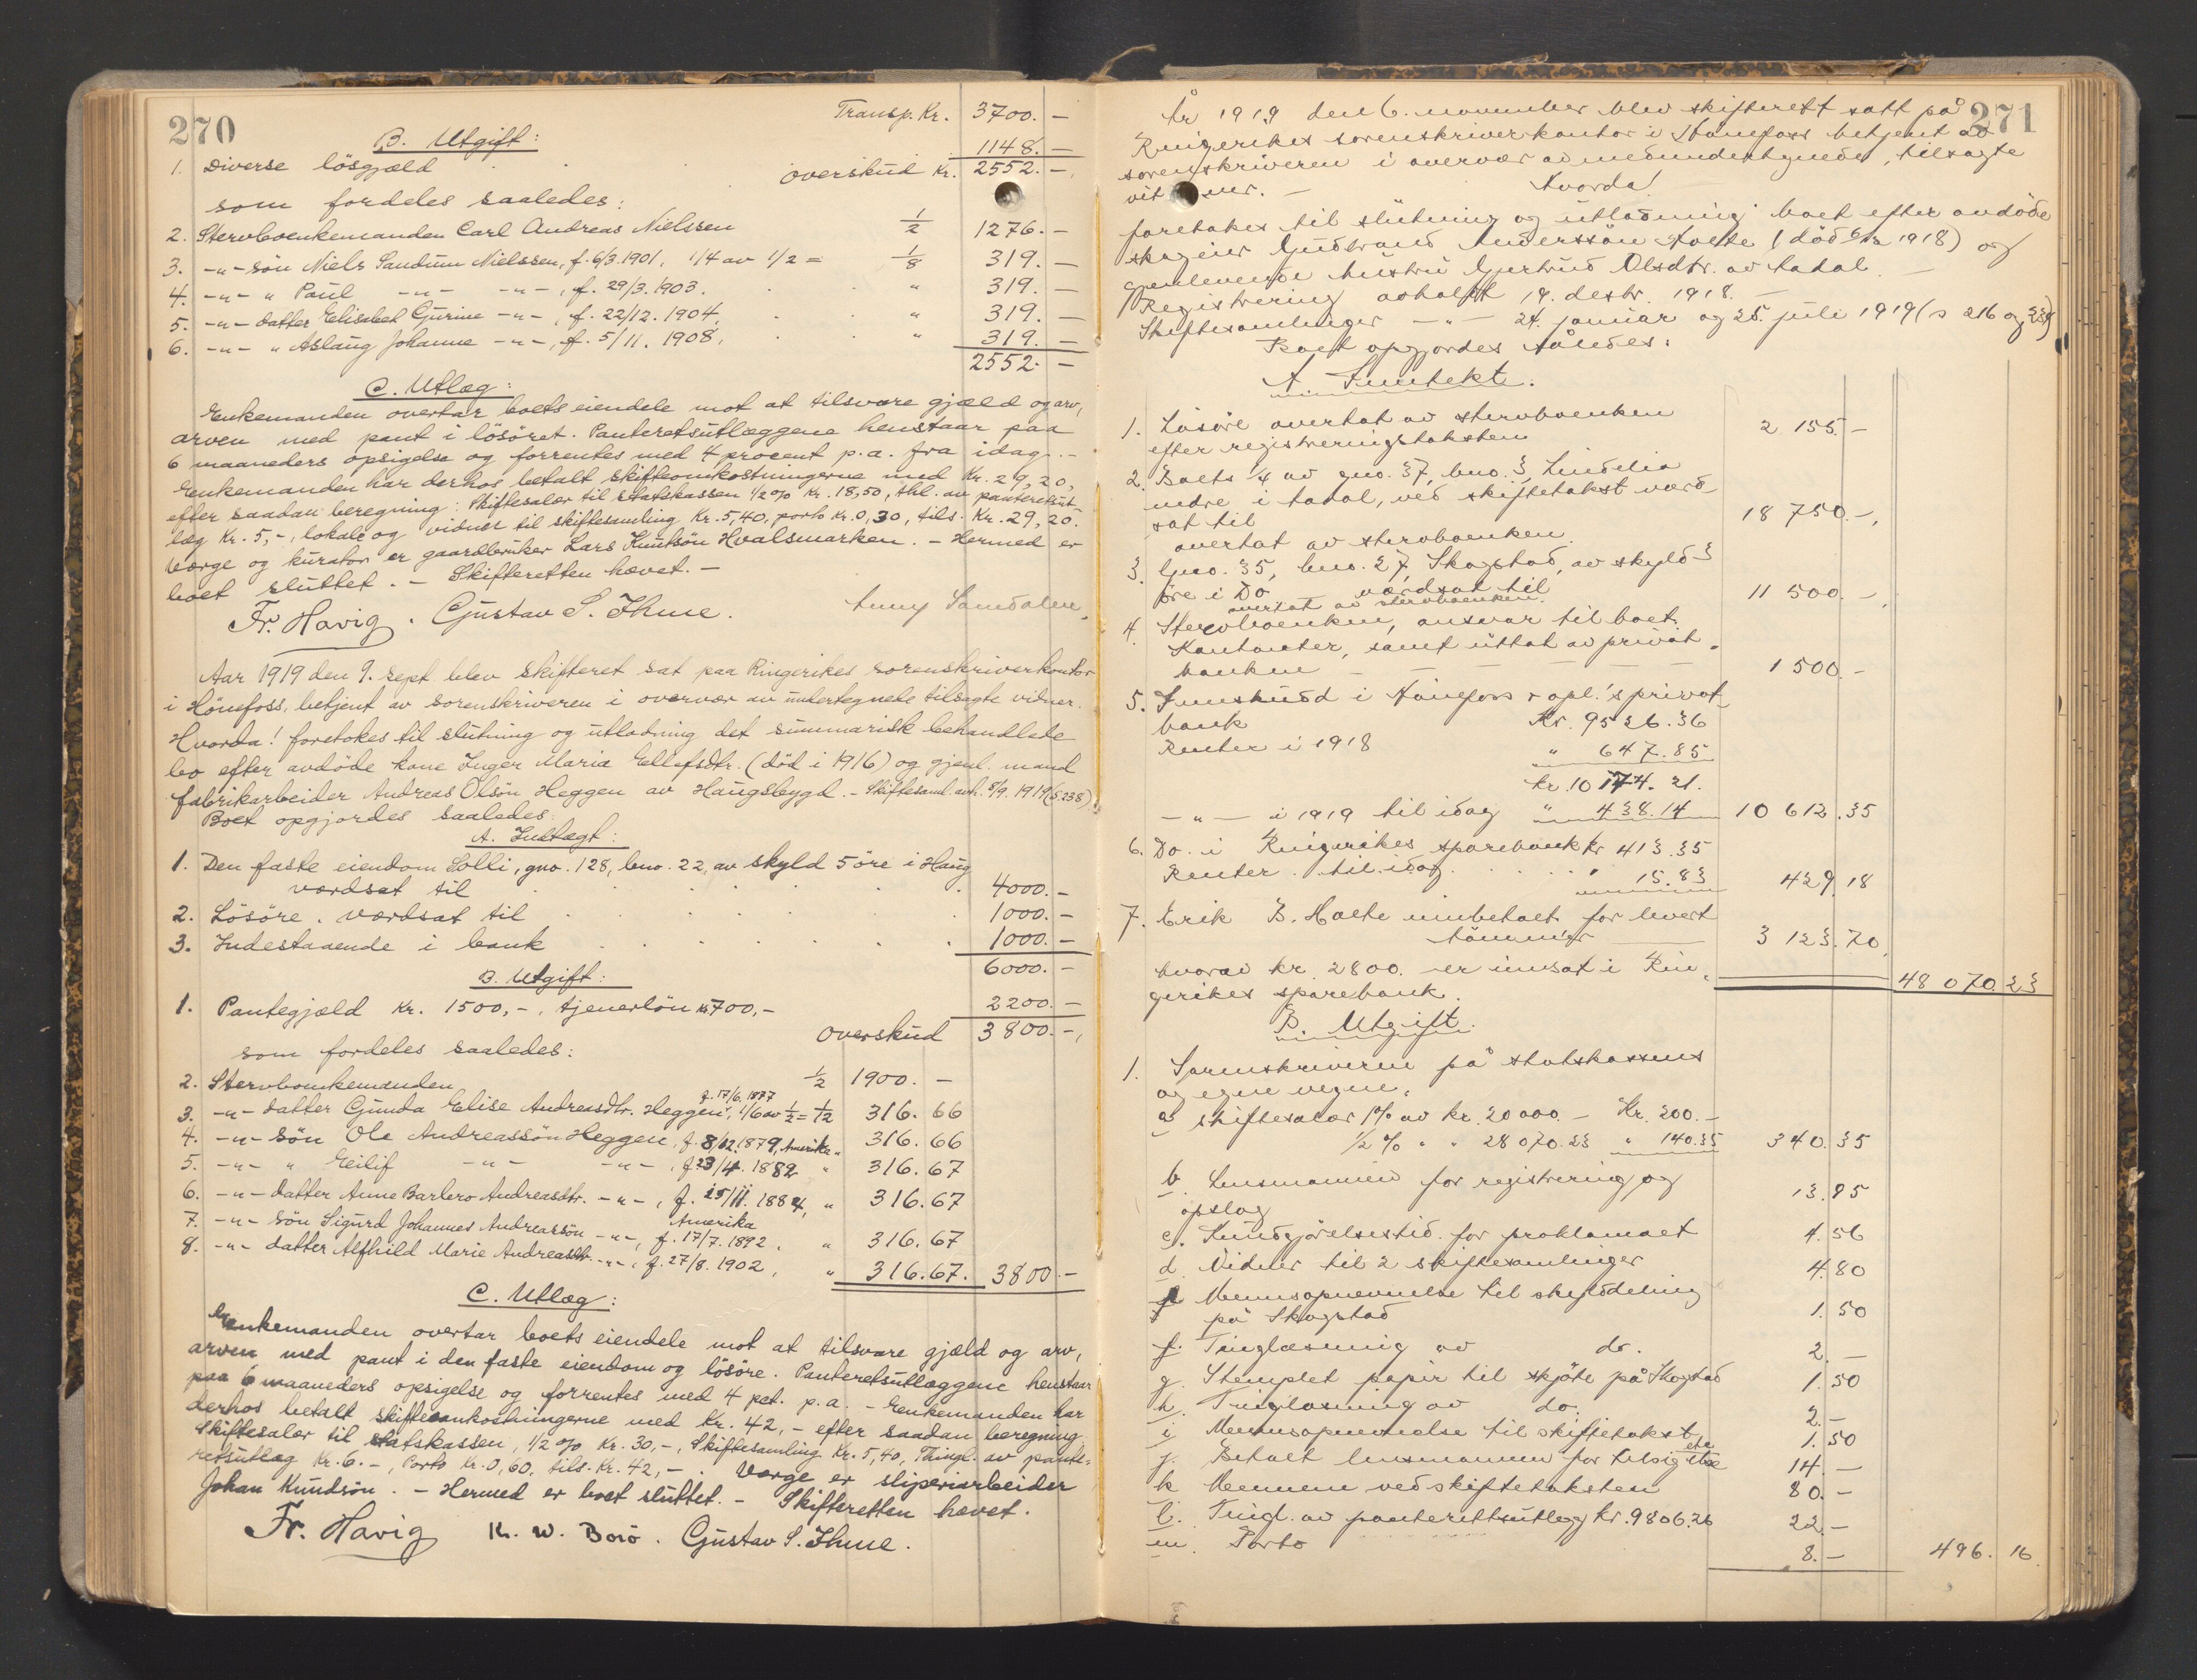 270
Transp. Kr. 3700. -
B. Utgift:
1. Diverse lösgjæld . . . 1148. -
overskud Kr. 2552. -
som fordeles saaledes:
2. Stervboenkemanden Carl Andreas Nielssen 1/2 1276. -
3. -"- søn Niels Sandum Nielssen, f. 6/3.1901, 1/4 av 1/2 = 1/8 319. -
4. -"- " Paul -"- -"-, f. 29/3.1903. " 319. -
5. -"- datter Elisabet Gurine -"-, f. 22/12.1904, " 319. -
6. -"- " Aslaug Johanne -"-, f. 5/11.1908, " 319. -
2552. -
C. Utlæg:
Enkemanden overtar boets eiendele mot at tilsvare gjæld og arv,
arven med pant i lösöret. Panteretsutlæggene henstaar paa
6 maaneders opsigelse og forrentes med 4 procent p.a. fra idag. -
Enkemanden har derhos betalt skifteomkostningerne med Kr. 29,20,
efter saadan beregning: Skiftesalær til statskassen 1/2% Kr. 18,50, thl. av panteretsut-
læg Kr. 5,-, lokale og vidner til skiftesamling Kr. 5,40, porto Kr. 0,30, tils. Kr. 29,20.
Værge og kurator er gaardbruker Lars Knutsön Hvalsmarken. - Hermed er
boet sluttet. - Skifteretten hævet. -
Fr. Havig. Gustav S. Ihme. Anny Sandalen.
Aar 1919 den 9. sept. blev skifteret sat paa Ringerikes sorenskriverkontor
i Hönefoss, betjent av sorenskriveren i overvær av undertegnede tilsagte vidner.
Hvorda! foretokes til slutning og utlodning det summarisk behandlede
bo efter avdöde kone Inger Maria Ellefsdtr. (död i 1916) og gjenl. mand
fabrikarbeider Andreas Olsön Heggen av Haugsbygd. - Skiftesaml. avh. 8/9. 1919 (s. 238)
Boet opgjordes saaledes:
A. Indtægt:
1. Den faste eiendom Solli, gno. 128, bno. 22, av skyld 5 öre i Haug
værdsat til . . . 4000. -
2. Lösöre. værdsat til . . . 1000. -
3. Indestaaende i bank . . . 1000. -
6000. -
B. Utgift:
1. Pantegjæld Kr. 1500,-, tjenerlön Kr 700,- 2200. -
overskud 3800. -,
som fordeles saaledes:
2. Stervboenkemanden 1/2 1900. -
3. -"- datter Gunda Elise Andreasdtr. Heggen, f. 17/6.1877 1/6 av 1/2 = 1/12 316.66
4. -"- sön Ole Andreassön Heggen, f. 8/12.1879, Amerika " 316.66
5. -"- " Eilif -"- -"-, f. 23/4.1882 " 316.67
6. -"- datter Anne Barbro Andreasdtr. -"-, f. 25/11.1884, " 316.67
7. -"- sön Sigurd Johannes Andreassön -"-, Amerika f. 17/7.1892, " 316.67
8. -"- datter Alfhild Marie Andreasdtr. -"-, f. 27/8.1902, " 316.67. 3800 -
C. Utlæg:
Enkemanden overtar boets eiendele mot at tilsvare gjæld og arv,
arven med pant i den faste eiendom og lösöre. Panteretsutlæggene henstaar
paa 6 maaneders opsigelse og forrentes med 4 pct. p.a. - Enkemanden har
derhos betalt skifteomkostningerne med Kr. 42,- efter saadan beregning
Skiftesalær til statskassen, 1/2% Kr. 30,-, Skiftesamling Kr. 5,40, Thingl. av pante-
retsutlæg Kr. 6.-, Porto Kr. 0,60, tils. Kr. 42,-. Værge er sliperiarbeider
Johan Knudsön. - Hermed er boet sluttet. - Skifteretten hævet.
Fr. Havig K. W. Borö. Gustav S. Ihme.
271
År 1919 den 6. november blev skifterett satt på
Ringerikes sorenskriverkontor i Hönefoss betjent av
sorenskriveren i overvær av medundertegnede, tilsagte
vitner. - Hvorda!
foretokes til slutning og utlodning boet efter avdöde
skogeier Gudbrand Anderssön Holte (död 6/12 1918) og
gjenlevende hustru Gjertrud Olsdtr. av Aadal.
Registrering avholdt 19. desbr. 1918. -
Skiftesamlinger -"- 24. januar og 25. juli 1919 (s 216 og 239)
Boet opgjordes således:
A. Inntekt.
1. Lösöre overtat av stervboenken
efter registreringstaksten 2 155. -
2. Boets 1/4 av gno. 37, bno. 3, Lindelia
nedre i Aadal, ved skiftetakst værd-
sat til 18 750. -,
overtat av stervboenken.
3. Gno. 35, bno. 27, Skogstad, av skyld 3
öre i Do værdsat til 11 500. -,
overtat av stervboenken.
4. Stervboenken, ansvar til boet.
Kontanter, samt uttat av privat-
banken - - - - 1 500. -
5. Innskudd i Hönefoss & opl.'s privat-
bank Kr. 9526.36
Renter i 1918 " 647.85
Kr. 10 174.21.
-"- i 1919 til idag " 438.14 10 612.35
6. Do. i Ringerikes sparebank kr 413.35
Renter til idag . . . " 15.83 429.18
7. Erik B. Holte innbetalt for levert
tömmer 3 123.70
hvorav kr. 2800. er innsat i Rin-
gerikes sparebank. 48 070.23
B. Utgift.
1. Sorenskriveren på statskassens
og egne vegne.
a skiftesalær 1% av kr. 20000.- Kr. 200.-
1/2% " " 28070.23 " 140.35 340.35
b. Lensmannen for registrering og
opslag 13.95
c. Kundgjörelsestid. for proklamaet 4.56
d. Vidner til 2 skiftesamlinger 4.80
e Mennsopnevnelse til skylddeling
på Skogstad 1.50
f. Tinglæsning av do. 2. -
g. Stemplet papir til skjöte på Skogstad 1.50
h. Tinglæsning av do. 2. -
i Mennsopnevnelse til skiftetakst 1.50
j. Betalt lensmannen for tilsigelse etc 14. -
k Mennene ved skiftetaksten 80. -
l. Tingl. av panterettsutlegg kr. 9806.26 22. -
m. Porto 8. - 496.16